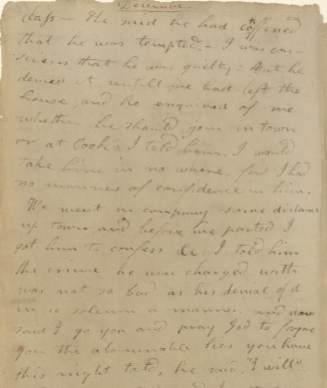 December
class – He said he had confessed
that he was tempted – I was con-
scious that he was guilty: But he
denied it, untill we had left the
house, and he enquired of me
whether he should join in town
or at Cooks, I told him, I would
take him in no where, for I had
no manner of confidence in him.
We went in company some distance
up town, and before we parted I
got him to confess &c I told him
the crime he was charged with
was not so bad as his denial of it
in so solemn a manner. and now
said I go you and pray God to forgive
you the abominable lies you have
this night told, he said "I will"